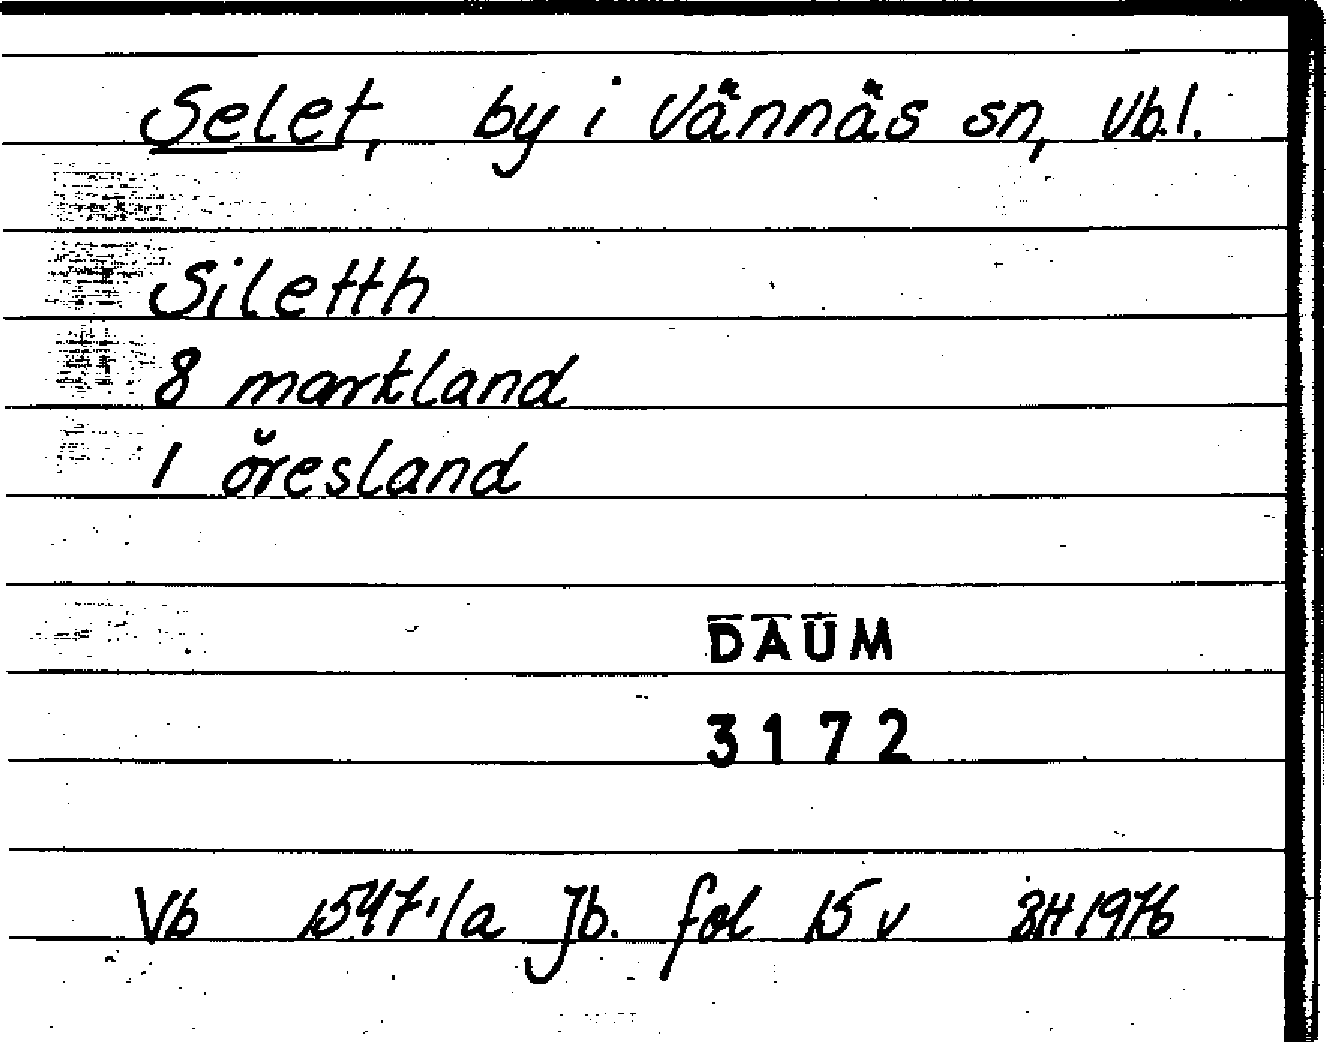 Selet, by i Vännäs sn, Vb.l.
Siletth
8 markland
1 öresland
DAUM
3172
Vb 1547:1a Jb. fol 15 v BH 1976